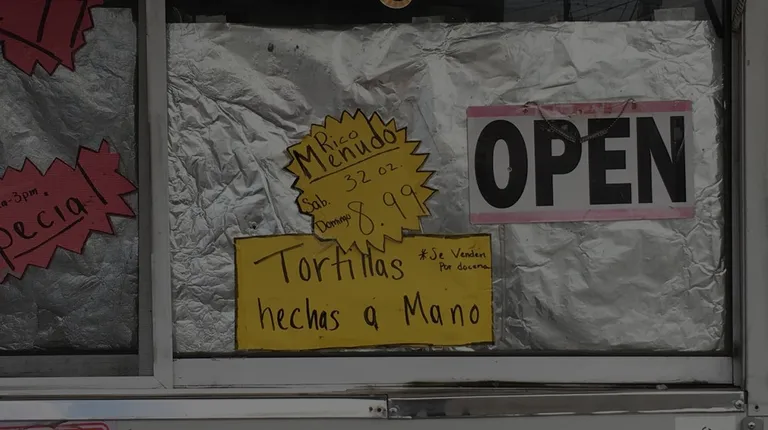 Rico
Menudo
32 oz.
Sab.
Domingo 8.99
Tortillas
hechas a Mano
*Se Venden
Por docena
OPEN
3pm
pecial